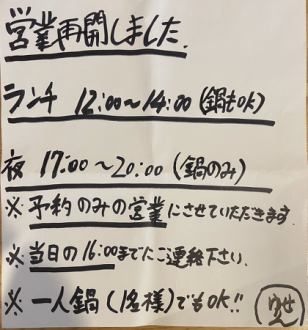 営業再開しました.
ランチ 12:00〜14:00 (鍋もOK)
夜 17:00〜20:00 (鍋のみ)
※予約のみの営業にさせていただきます.
※当日の16:00までにご連絡下さい.
※一人鍋(1名様)でもOK!!